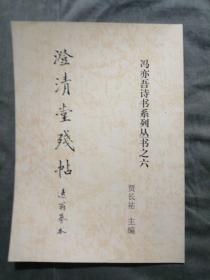 冯亦吾诗书系列丛书之六
贾长祐 主编
澄清堂残帖
逸翁摹本